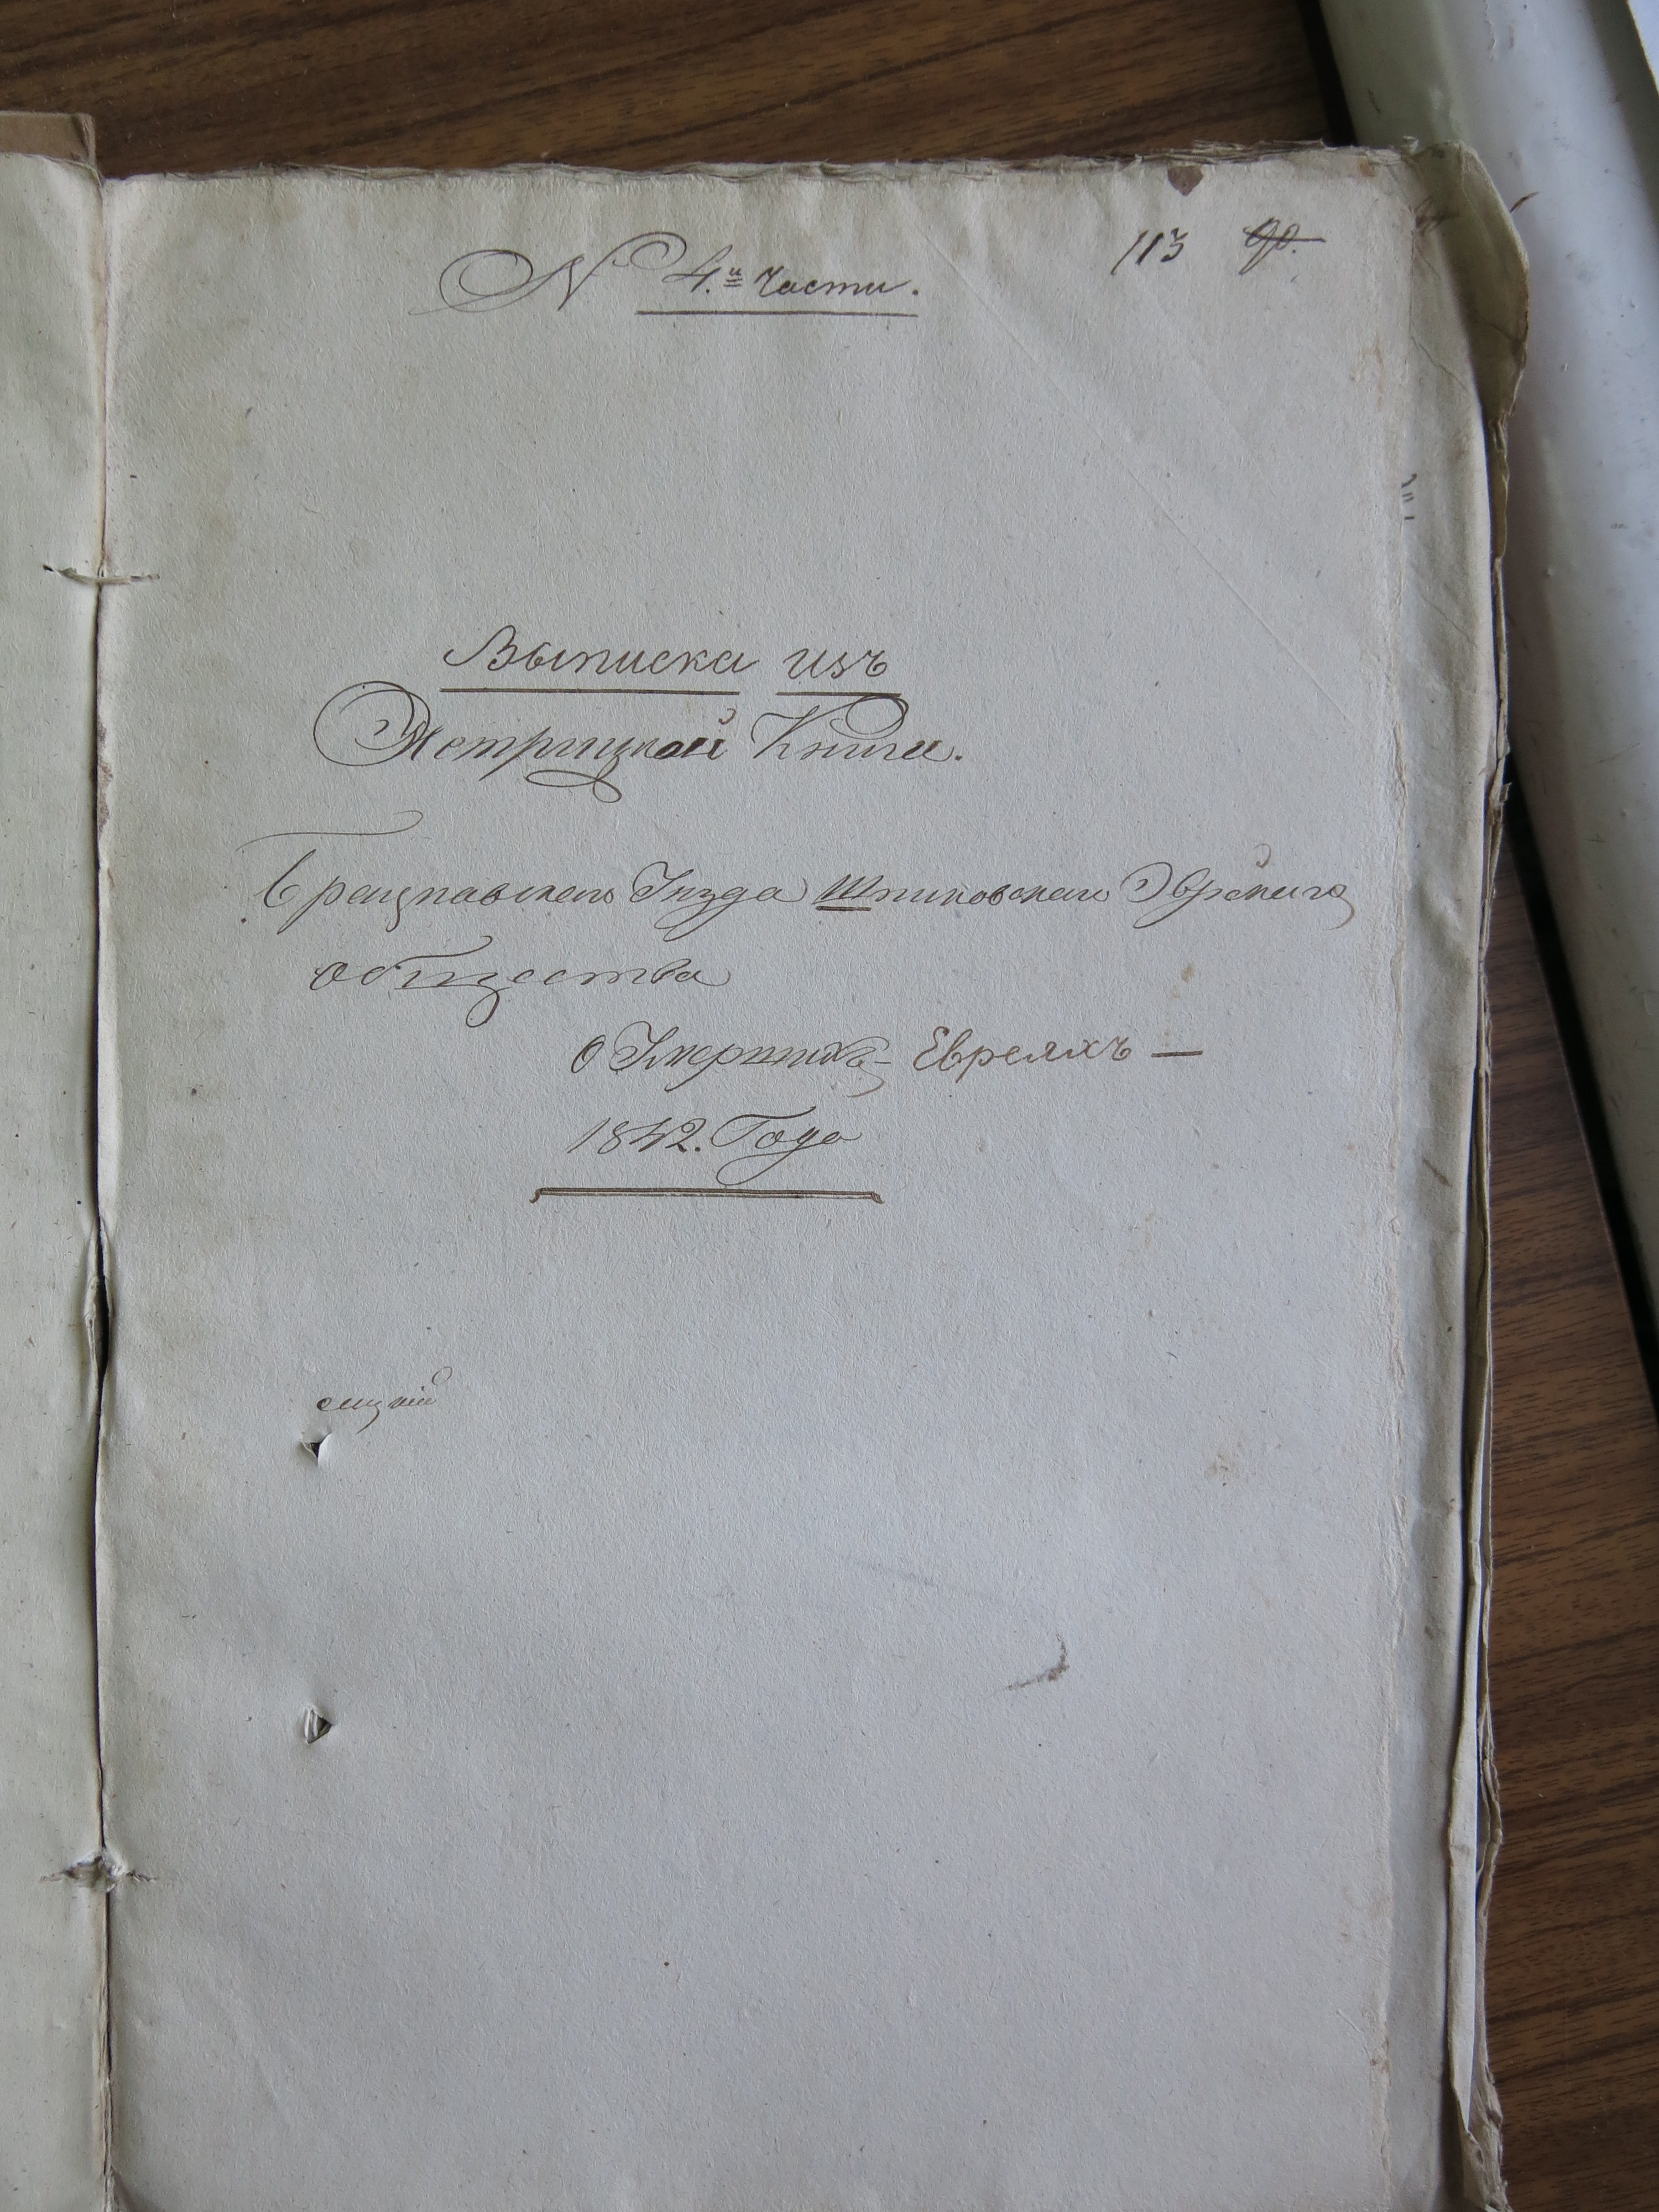 113 90.
N 4.й Части.
Выписка изъ
Метрицкой Книги.
Брацлавскаго Уѣзда Шпиковскаго Эврейскаго
общества
О Умершихъ Евреяхъ —
1842. Года